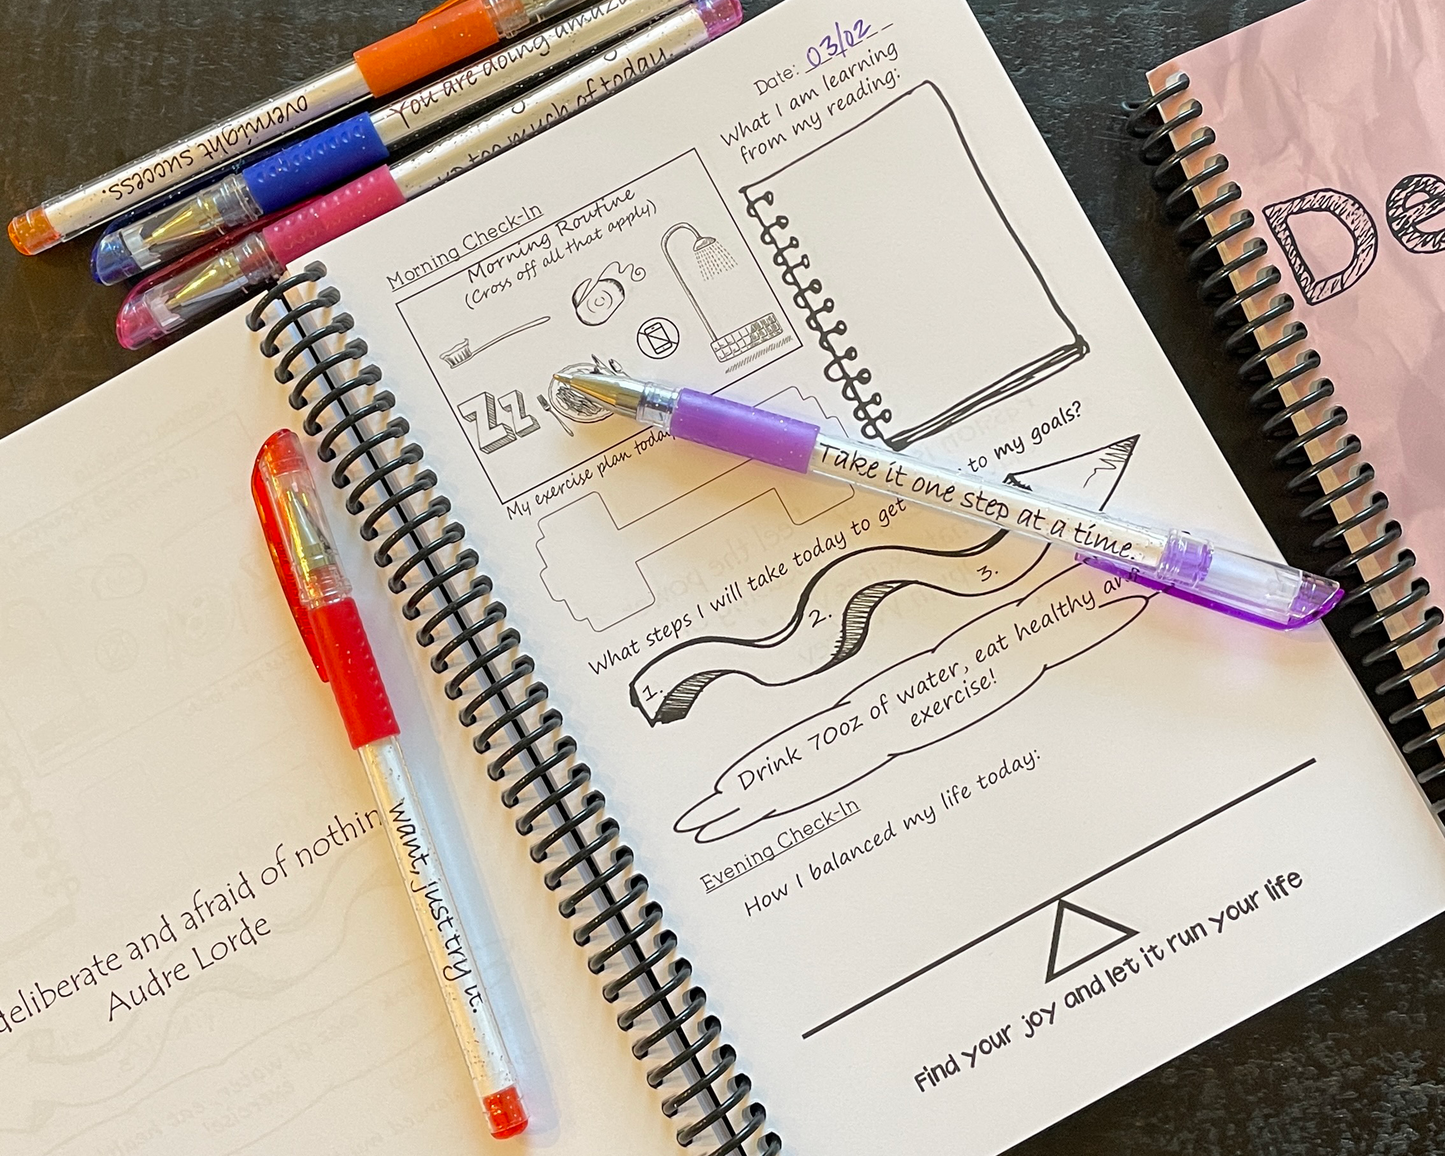 overnight success.
You are doing amazing
too much of today
Date: 03/02
What I am learning
from my reading:
Morning Check-In
Morning Routine
(Cross off all that apply)
Zz
My exercise plan today
to my goals?
What steps I will take today to get
1.
2.
3.
Take it one step at a time.
Drink 70oz of water, eat healthy and
exercise!
Evening Check-In
How I balanced my life today:
Find your joy and let it run your life
want, just try it.
deliberate and afraid of nothin
Audre Lorde
De